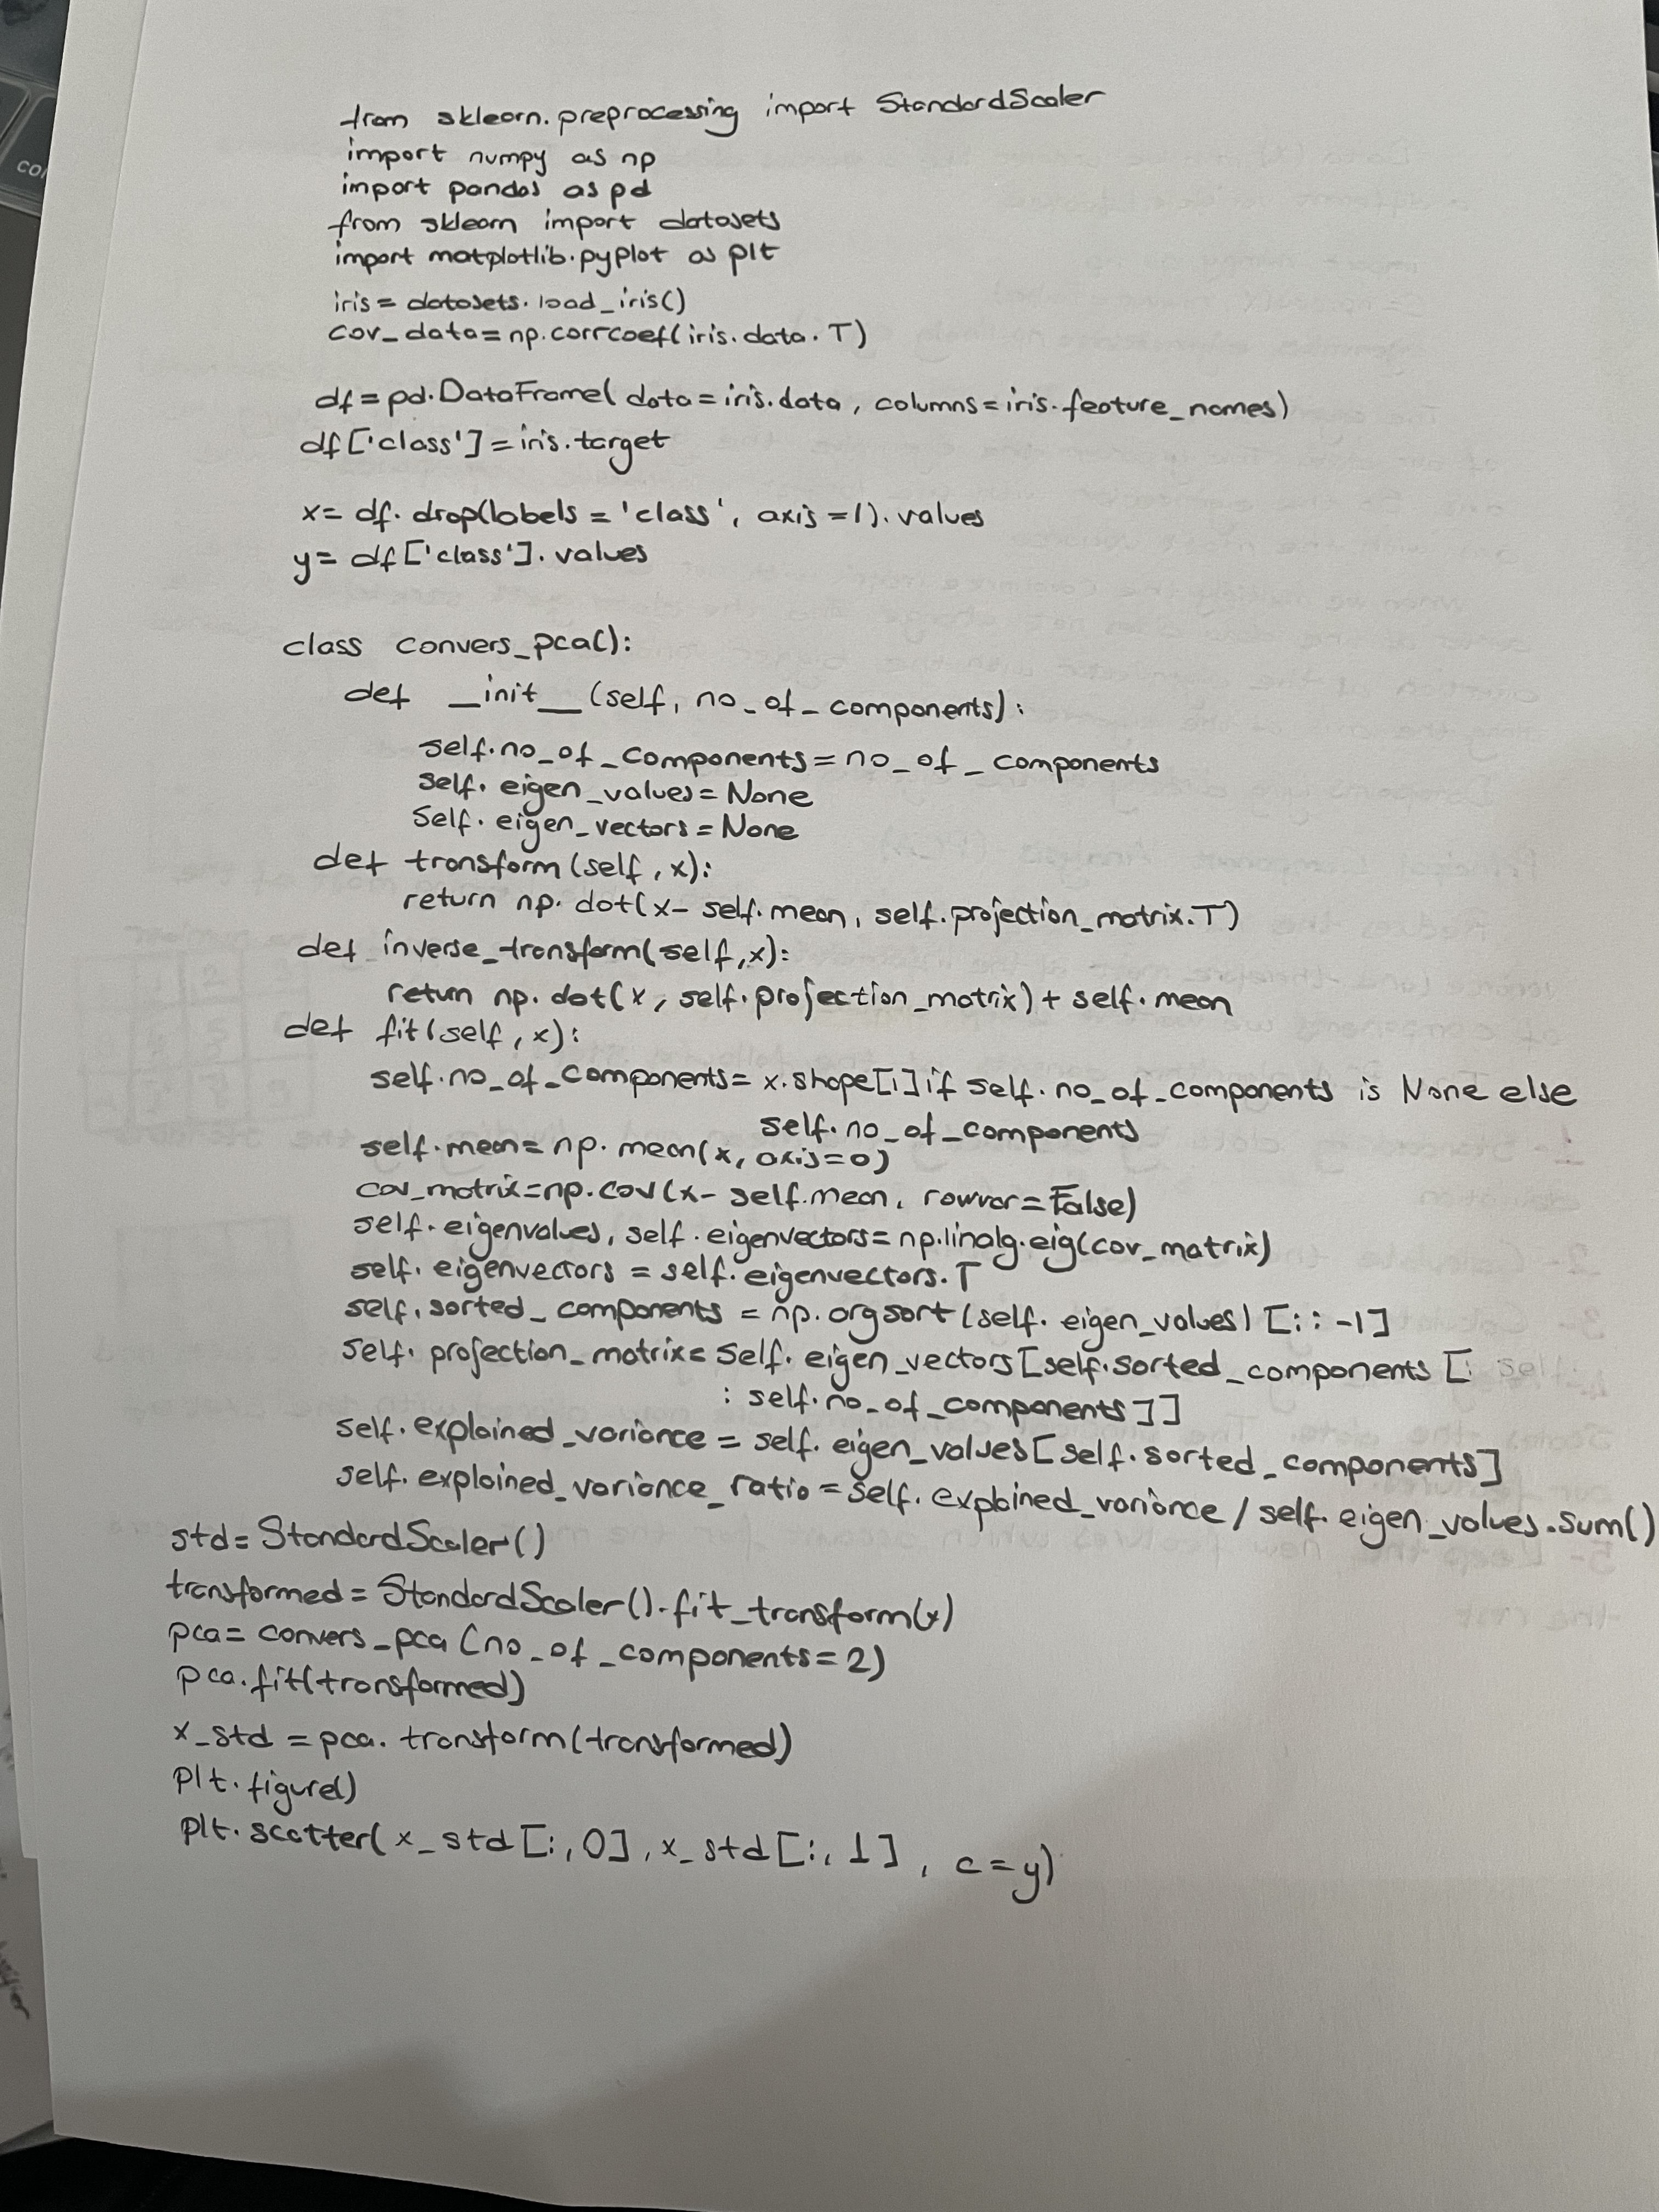 from sklearn.preprocessing import StandardScaler
import numpy as np
import pandas as pd
from sklearn import datasets
import matplotlib.pyplot as plt
iris = datasets.load_iris()
cov_data = np.corrcoef(iris.data.T)
df = pd.DataFrame(data = iris.data, columns = iris.feature_names)
df['class'] = iris.target
x = df.drop(labels = 'class', axis = 1).values
y = df['class'].values
class convers_pca():
def __init__(self, no_of_components):
self.no_of_components = no_of_components
self.eigen_values = None
self.eigen_vectors = None
def transform(self, x):
return np.dot(x - self.mean, self.projection_matrix.T)
def inverse_transform(self, x):
return np.dot(x, self.projection_matrix) + self.mean
def fit(self, x):
self.no_of_components = x.shape[1] if self.no_of_components is None else
self.no_of_components
self.mean = np.mean(x, axis=0)
cov_matrix = np.cov(x - self.mean, rowvar=False)
self.eigenvalues, self.eigenvectors = np.linalg.eig(cov_matrix)
self.eigenvectors = self.eigenvectors.T
self.sorted_components = np.argsort(self.eigen_values)[::-1]
self.projection_matrix = self.eigen_vectors[self.sorted_components[: self.
: self.no_of_components]]
self.explained_variance = self.eigen_values[self.sorted_components]
self.explained_variance_ratio = self.explained_variance / self.eigen_values.sum()
std = StandardScaler()
transformed = StandardScaler().fit_transform(x)
pca = convers_pca(no_of_components = 2)
pca.fit(transformed)
x_std = pca.transform(transformed)
plt.figure()
plt.scatter(x_std[:,0], x_std[:,1], c = y)